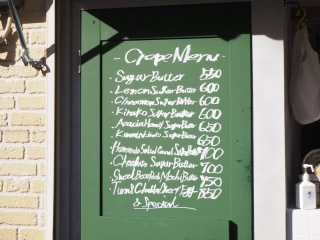 - Crepe Menu -
・Sugar Butter 550
・Lemon Sugar Butter 600
・Cinnamon Sugar Butter 600
・Kinako Sugar Butter 600
・Acacia Honey Sugar Butter 650
・Sugar Butter 650
Homemade Salted Caramel Butter 700
・Chocolate Sugar Butter 700
・Sweet Bean Paste Mochi Butter 750
・Tuna Cheddar Cheese Egg 850
& Special